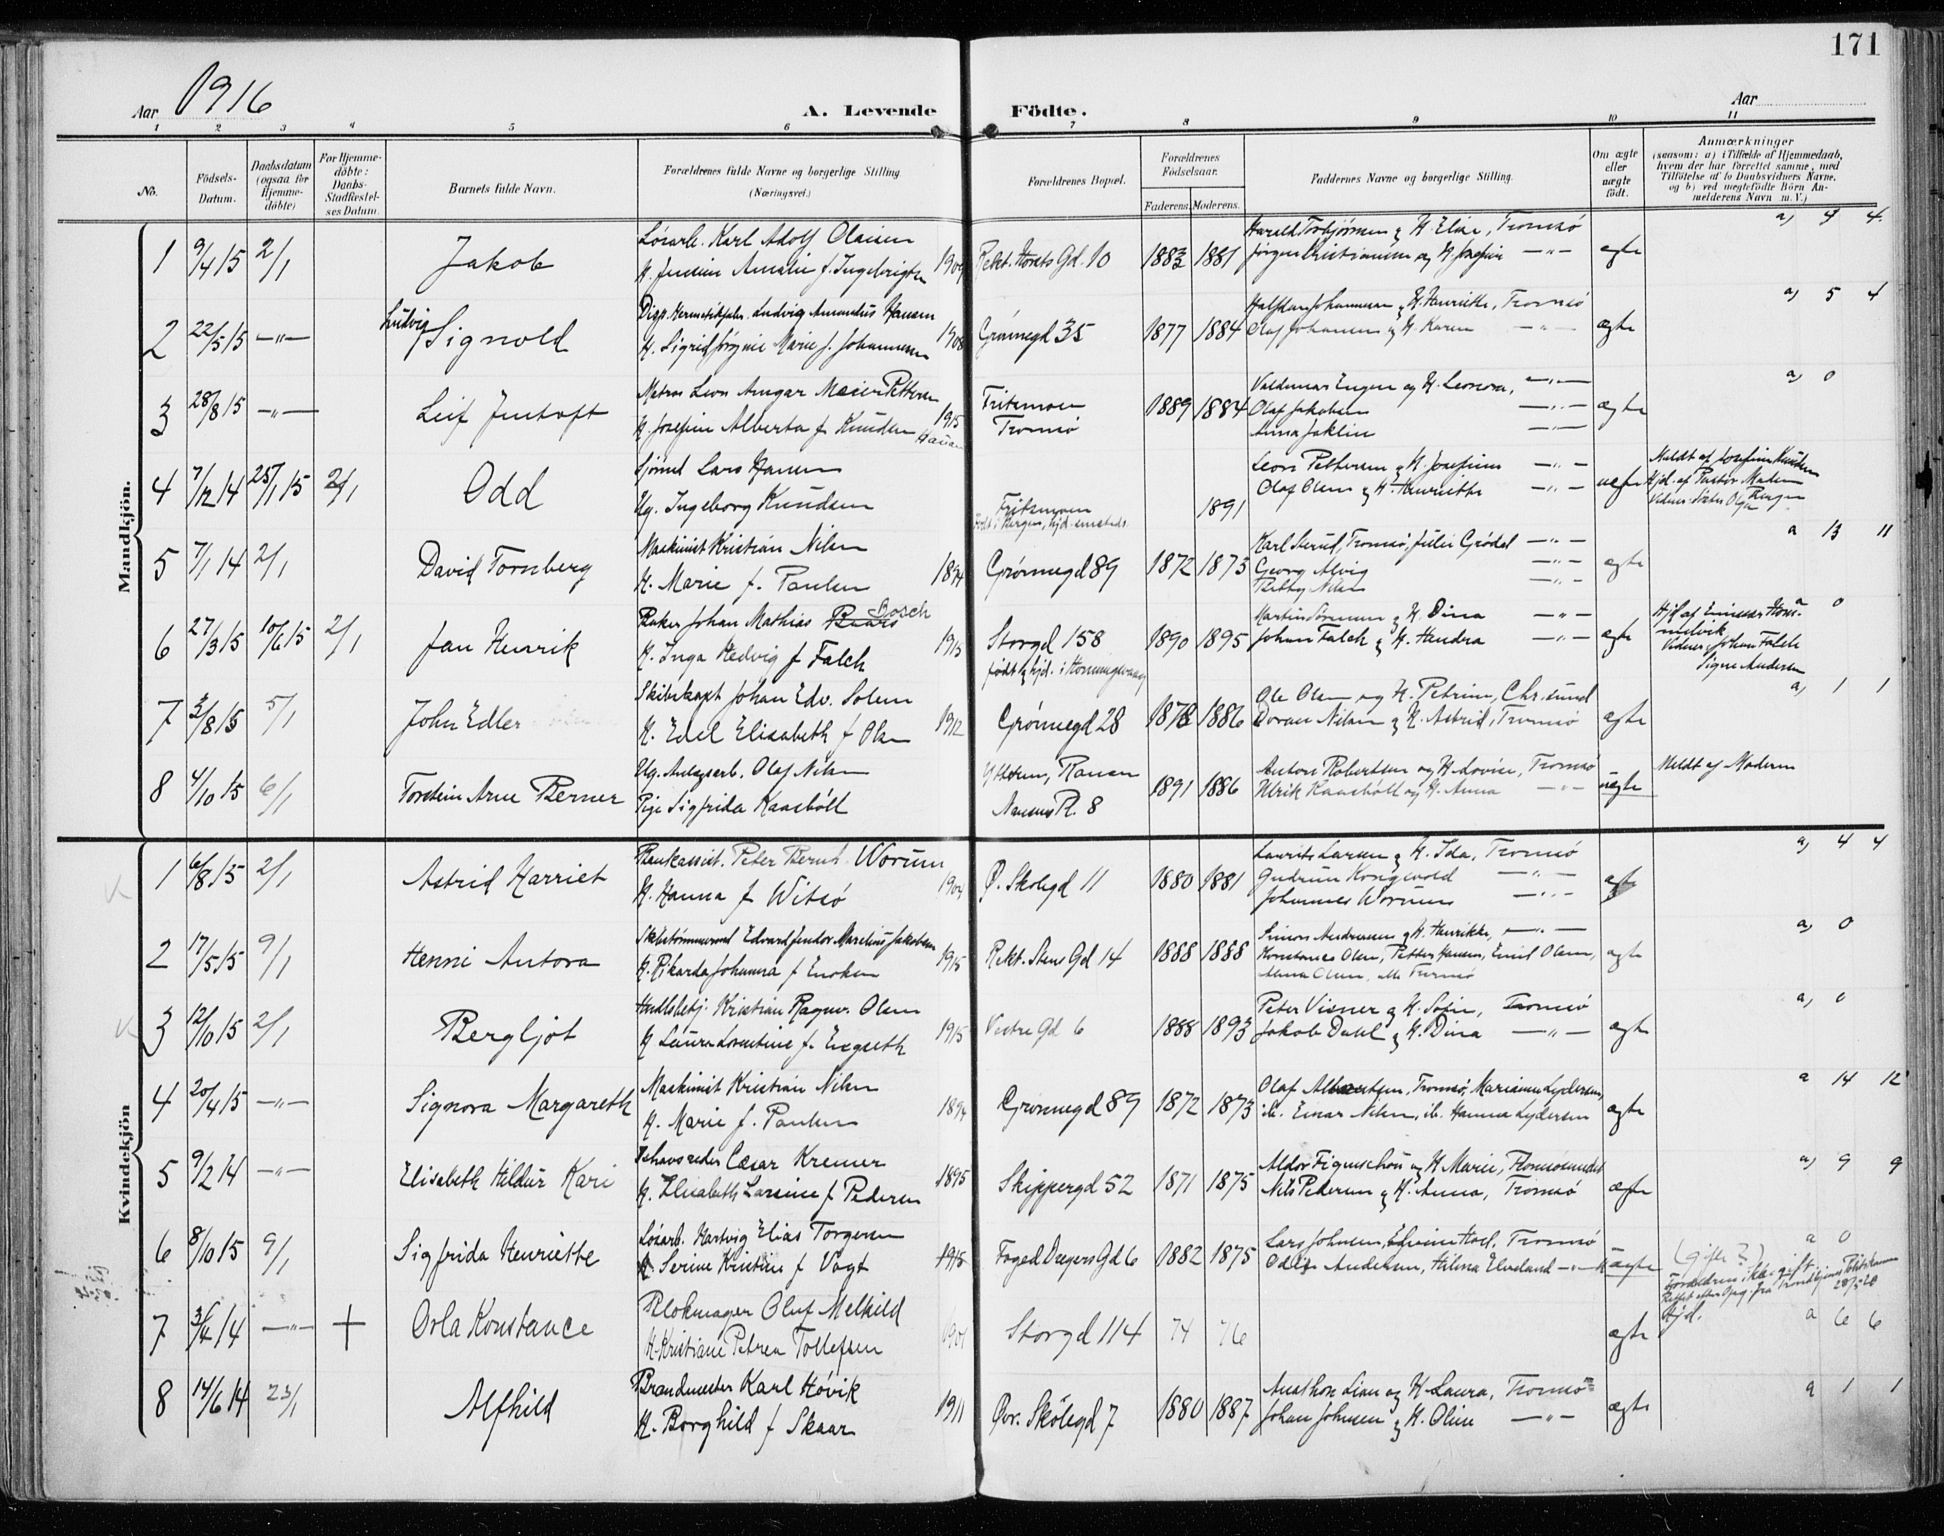 171
Aar 1916 A. Levende Födte. Aar
1 2 3 4 5 6 7 8 9 10 11
No.
Födsels-Datum.
Daabsdatum (ogsaa for Hjemme-döbte)
For Hjemme-döbte: Daabs-Stadfæstel-ses Datum.
Barnets fulde Navn.
Forældrenes fulde Navne og borgerlige Stilling (Næringsvei.)
Forældrenes Bopæl.
Forældrenes Födselsaar.
Faderens. Moderens.
Faddernes Navne og borgerlige Stilling.
Om ægte eller uægte födt.
Anmærkninger
(saasom: a) i Tilfælde af Hjemmedaab,
hvem der har forrettet samme, med
Tilföielse af to Daabsvidners Navne,
og b) ved uægtefödte Börn An-
melderens Navn m. V.)
Mandkjön.
1 9/4 15 2/1 Jakob
Løsarb. Karl Adolf Olaisen
H. Jensine Amalie f. Ingebrigtsen
Rekt. Horsts Gd. 10 1883 1881
Harald Torbjørnsen og H. Elise, Tromsø
Jørgen Kristiansen og H. Josefine —"—
ægte a) 4 4
2 22/5 15 —"— Ludvig Signold
Ludvig Amandus Hansen
H. Sigrid Jørgine Marie f. Johannesen 1908
Grønnegd 35 1877 1884
Halfdan Johannesen og H. Henriette, Tromsø
Olaf Johansen og H. Karen —"—
ægte a) 5 4
3 28/8 15 —"— Leif Jentoft
Matros Leon Ansgar Meier Pettersen
H. Josefine Alberta f. Knudsen 1915
Fritzmoen
Tromsø
1889 1884
Valdemar Eugen og H. Leonora, —"—
Olaf Jakobsen —"—
Anna Jaklin —"—
ægte a) 0
4 7/12 14 25/1 15 2/1 Odd
Sjømd Lars Hansen
Ug. Ingeborg Knudsen
Fritzmoen
1891
Leon Pettersen og H. Josefine —"—
Olaf Olsen og H. Henriette —"—
uægte
Meldt af Josefine Knudsen
Hjd. af Pastor Madsen
5 7/1 14 2/1 David Tornberg
Maskinist Kristian Nilsen
H. Marie f. Paulsen 1894
Grønnegd 89 1872 1873
Karl Sterud, Tromsø, Julie Grødal —"—
Georg Alvig —"—
Betzy Nilsen —"—
ægte a 13 11
6 27/3 15 10/6 15 2/1 Jan Henrik
Baker Johan Mathias Bosch
H. Inga Hedvig f Falch 1915
Storgd 158
født og hjd. i Honningsvaag
1890 1895
Martin Sørensen og H. Dina —"—
Johan Falch og H. Hendra —"—
ægte a 0
Vidner: Johan Falch
Signe Andersen
7 3/8 15 5/1 John Edler
Skibskapt Johan Edv. Solem
H. Edel Elisabeth f Olsen 1912
Grønnegd 28 1878 1886
Ole Olsen og H. Petrine, Chr.sund
Doran Nilsen og H. Astrid, Tromsø
ægte a) 1 1
8 4/10 15 6/1 Torstein Arne Berner
Ug. Anlægsarb. Olaf Nilsen
Pige Sigfrida Kaasbøll
Ytteren, Ranen
Nansens Pl. 8
1891 1886
Anton Robertsen og H. Lovise, Tromsø
Ulrik Kaasbøll og H. Anna —"—
uægte Meldt af Moderen
Kvindekjön
1 6/8 15 2/1 Astrid Harriet
Bankassist. Peter Bernt Worum
H. Hanna f Witsø
Ø. Skolegd 11 1880 1881
Laurits Larsen og H. Ida, Tromsø
Gudrun Kongsvold —"—
Johannes Worum —"—
ægte a) 4 4
2 17/5 15 9/1 Henni Antora
Skibstømmermd Edvard Jendor Marelius Jakobsen
H. Rikarda Johanna f Enoksen 1915
Rekt. Stens Gd 14 1888 1888
Simon Andreassen og H. Henrikke, —"—
Konstanse Olsen, Petter Hansen, Emil Olsen,
Anna Olsen, alle Tromsø
ægte a) 0
3 12/10 15 2/1 Bergljot
Handelsbetj. Kristian Ragnv. Olsen
H Laura Lorentine f. Engseth 1915
Vestre Gd 6 1888 1893
Peter Visner og H. Sofie, Tromsø
Jakob Dahl og H. Dina —"—
ægte a) 0
4 20/4 15 —"— Signora Margareth
Maskinist Kristian Nilsen
H. Marie f. Paulsen 1894
Grønnegd 89 1872 1873
Olaf Albertsen, Tromsø, Marianne Lydersen,
ib. Einar Nilsen, ib. Hanna Lydersen
ægte a 14 12
5 9/2 14 —"— Elisabeth Hildur Kari
Ishavsreder Cæsar Kremer
H. Elisabeth Larsine f Pedersen 1895
Skippergd 52 1871 1875
Aldor Figenschou og H Marie, Tromsøsundet
Nils Pedersen og H. Anna, Tromsø
ægte a) 9 9
6 8/10 15 9/1 Sigfrida Henriette
Løsarb. Hartvig Elias Torgersen
H Serine Kristine f Vogt 1915
Foged Dreyers Gd 6 1882 1875
Lars Johnsen, Edvine Hoel, Tromsø
Andersen, Hilma Elveland —"—
uægte a 0
(gifte?)
Forældrene ikke gift.
28/5 20
7 3/4 14 —"— + Orla Konstance
Blokmager Oluf Melhild
H. Kristiane Petrea Tollefsen 1901
Storgd 114 74 76
ægte Hjd. a 6 6
8 14/6 14 23/1 Alfhild
Brandmester Karl Høvik
H. Borghild f Skaar 1911
Øvr. Skolegd 7 1880 1887
Anathon Lian og H Laura, Tromsø
Johan Johnsen og H. Oline —"—
ægte a 1 1